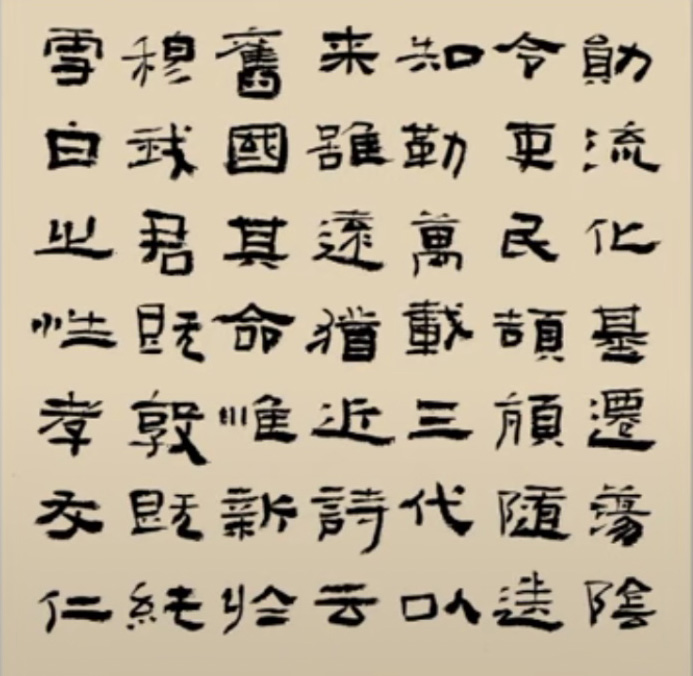 勛流化基遷蕩陰
令吏民頡頏隨送
知勒萬載三代以
来雖遠猶近詩云
舊國其命惟新於
穆我君既敦既純
雪白之性孝友仁